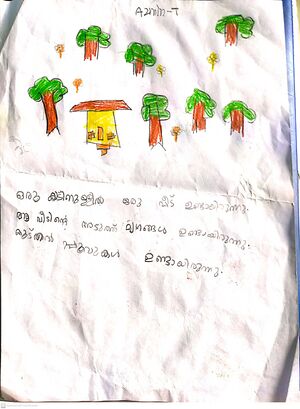 Aznin-T
ഒരു കടിനുള്ളിൽ ഒരു വീട് ഉണ്ടായിരുന്നു.
ആ വീടിന്റെ അടുത്ത് മൃഗങ്ങൾ ഉണ്ടായിരുന്നു.
പൂവുകൾ ഉണ്ടായിരുന്നു.